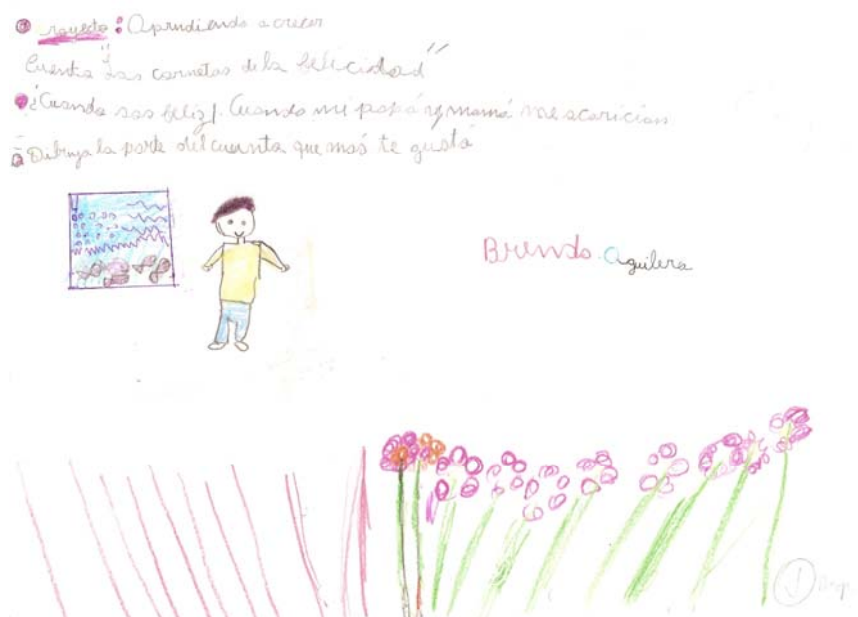 Proyecto: Aprendiendo a crecer
Cuento "Las carnetas de la felicidad"
¿Cuando sos feliz?. Cuando mi papá y mamá me acarician
Dibuja la parte del cuento que más te gustó
Brenda Aguilera